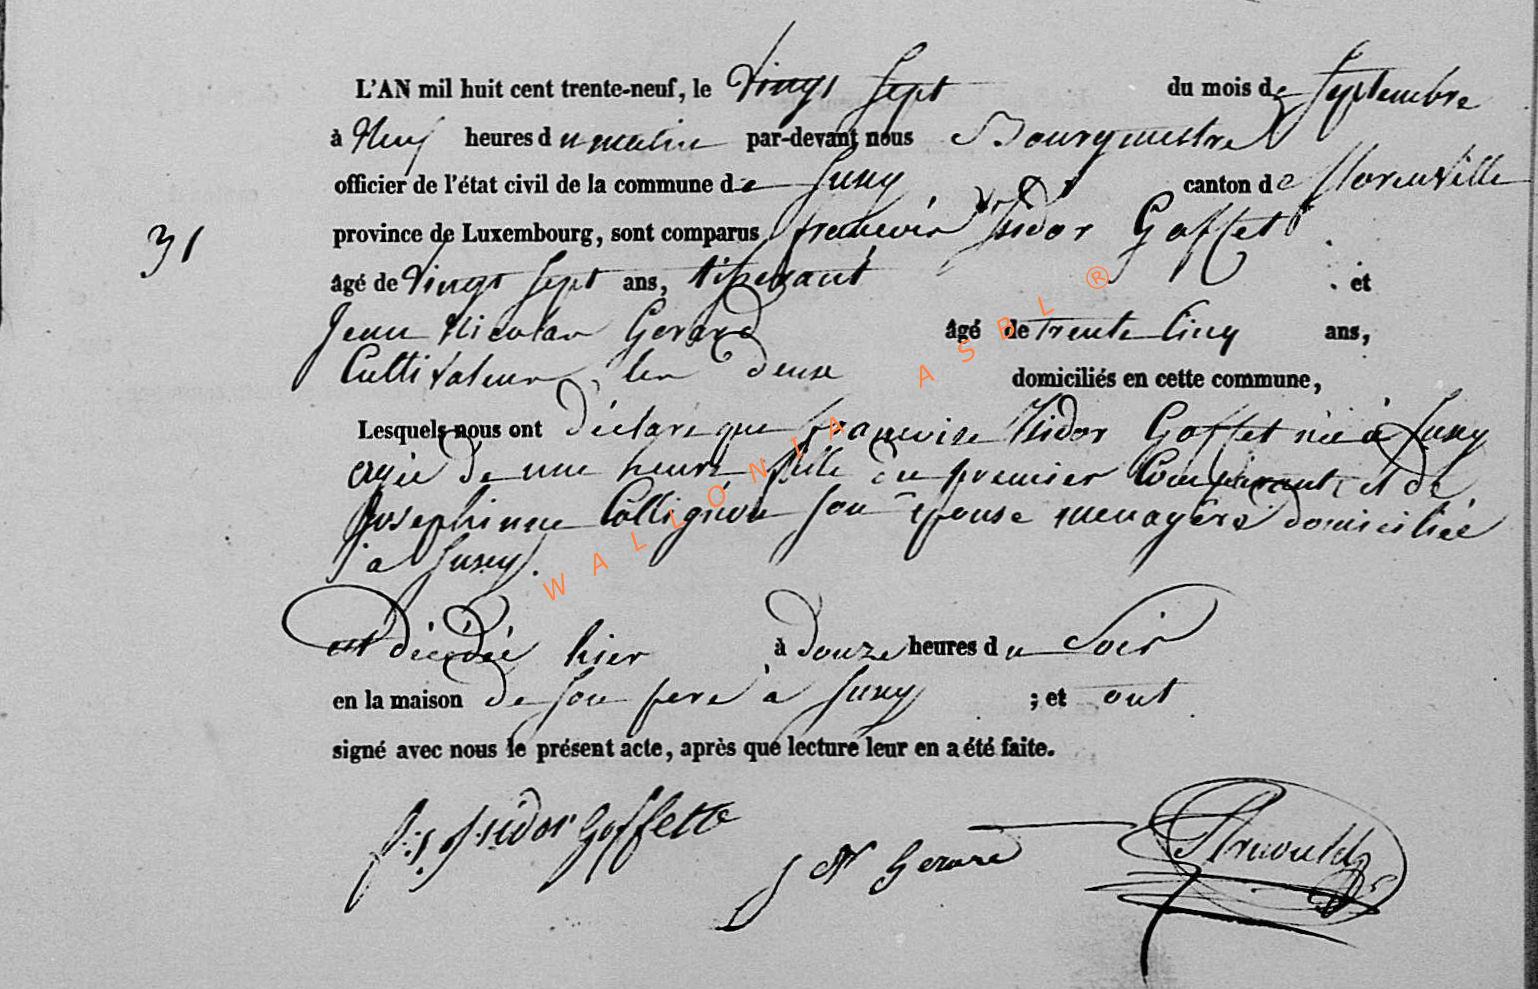 L'AN mil huit cent trente-neuf, le vingt sept du mois de Septembre
à Neuf heures du matin par-devant nous Bourgmestre
officier de l'état civil de la commune de Suxy canton de florenville
31 province de Luxembourg, sont comparus francois Isidor Goffet
âgé de vingt sept ans, tisserant et
Jean Nicolas Gerard âgé de trente cinq ans,
Cultivateur, les deux domiciliés en cette commune,
Lesquels nous ont déclare que francoise Isidor Goffet née à Suxy
agée de une heure fille du premier Comparant et de
Josephinne Collignon son épouse menagère domiciliée
à Suxy.
est décédée hier à douze heures du Soir
en la maison de son pere à Suxy ; et ont
signé avec nous le présent acte, après que lecture leur en a été faite.
Isidor Goffette
J N Gerard
WALLONIA ASBL ®